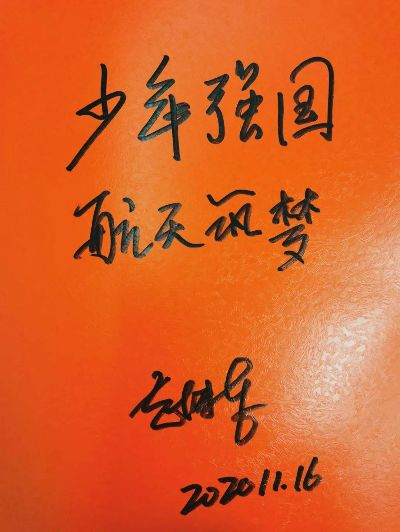 少年强国
航天筑梦
2020.11.16